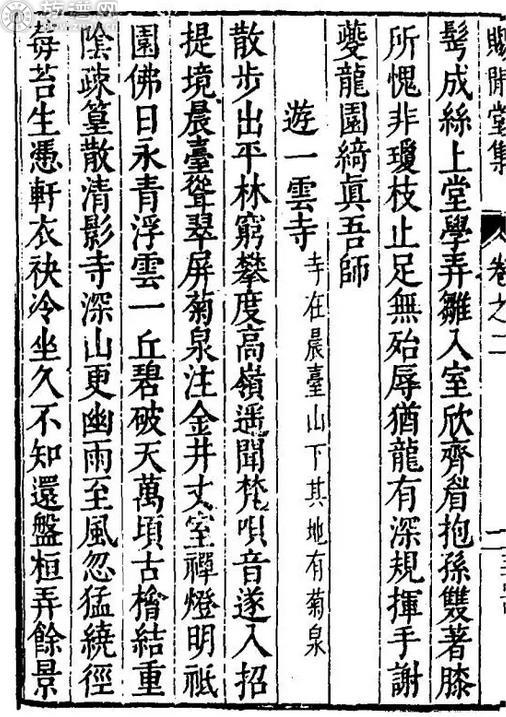 賜閒堂集
卷之二
髩成絲上堂學弄雛入室欣齊眉抱孫雙著膝
所愧非瓊枝止足無殆辱猶龍有深規揮手謝
夔龍園綺眞吾師
遊一雲寺 寺在晨臺山下其地有菊泉
散步出平林窮攀度高嶺遥聞梵唄音遂入招
提境晨臺聳翠屏菊泉注金井丈室禪燈明祇
園佛日永青浮雲一丘碧破天萬頃古檜結重
陰疎篁散清影寺深山更幽雨至風忽猛繞徑
莓苔生憑軒衣袂冷坐久不知還盤桓弄餘景